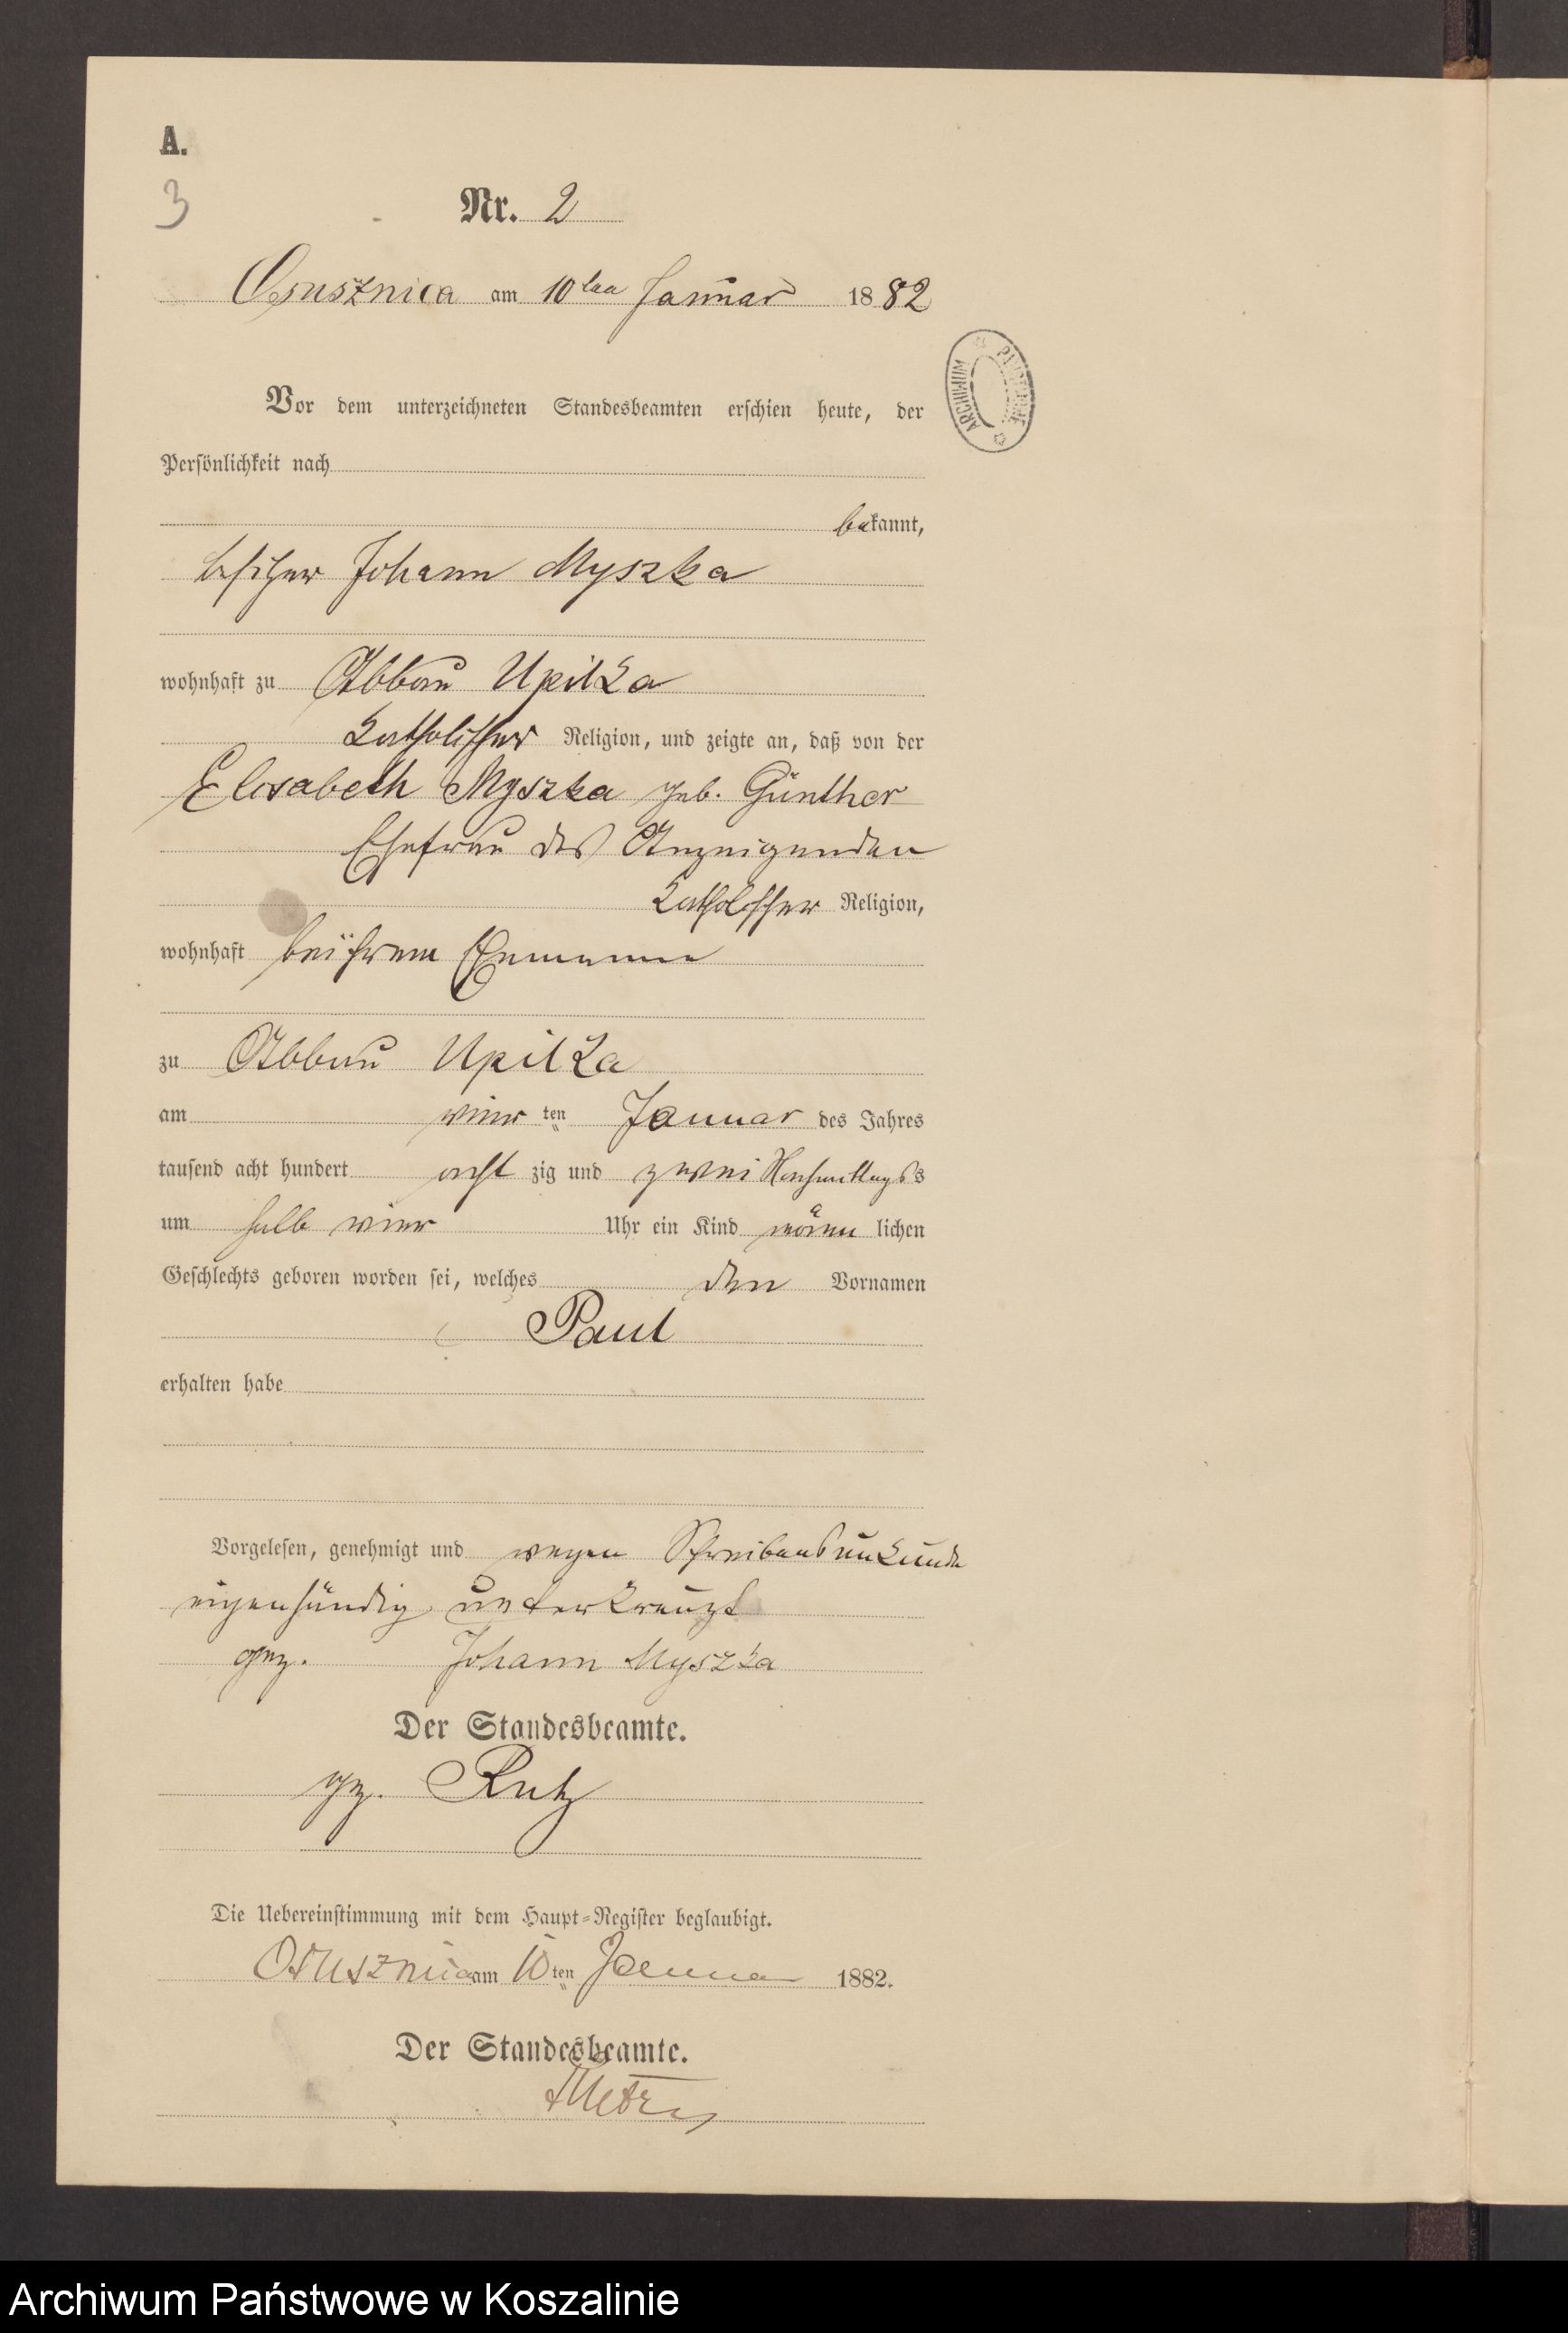 A.
3
Nr. 2
Ossusznica am 10ten Januar 1882
ARCHIWUM PAŃSTWOWE
Vor dem unterzeichneten Standesbeamten erschien heute, der
Persönlichkeit nach
bekannt,
besitzer Johann Myszka
wohnhaft zu Abbau Upilka
katholischer Religion, und zeigte an, daß von der
Elisabeth Myszka geb. Günther
Ehefrau des Anzeigenden
katholischer Religion,
wohnhaft bei ihrem Ehemanne
zu Abbau Upilka
am vier ten Januar des Jahres
tausend acht hundert acht zig und zwei Nachmittags
um halb vier Uhr ein Kind männ lichen
Geschlechts geboren worden sei, welches den Vornamen
Paul
erhalten habe
Vorgelesen, genehmigt und wegen Schreibensunkunde
eigenhändig unterkreuzt
gez. Johann Myszka
Der Standesbeamte.
gz. Rutz
Die Uebereinstimmung mit dem Haupt-Register beglaubigt.
am 10 ten Januar 1882.
Der Standesbeamte.
Archiwum Państwowe w Koszalinie